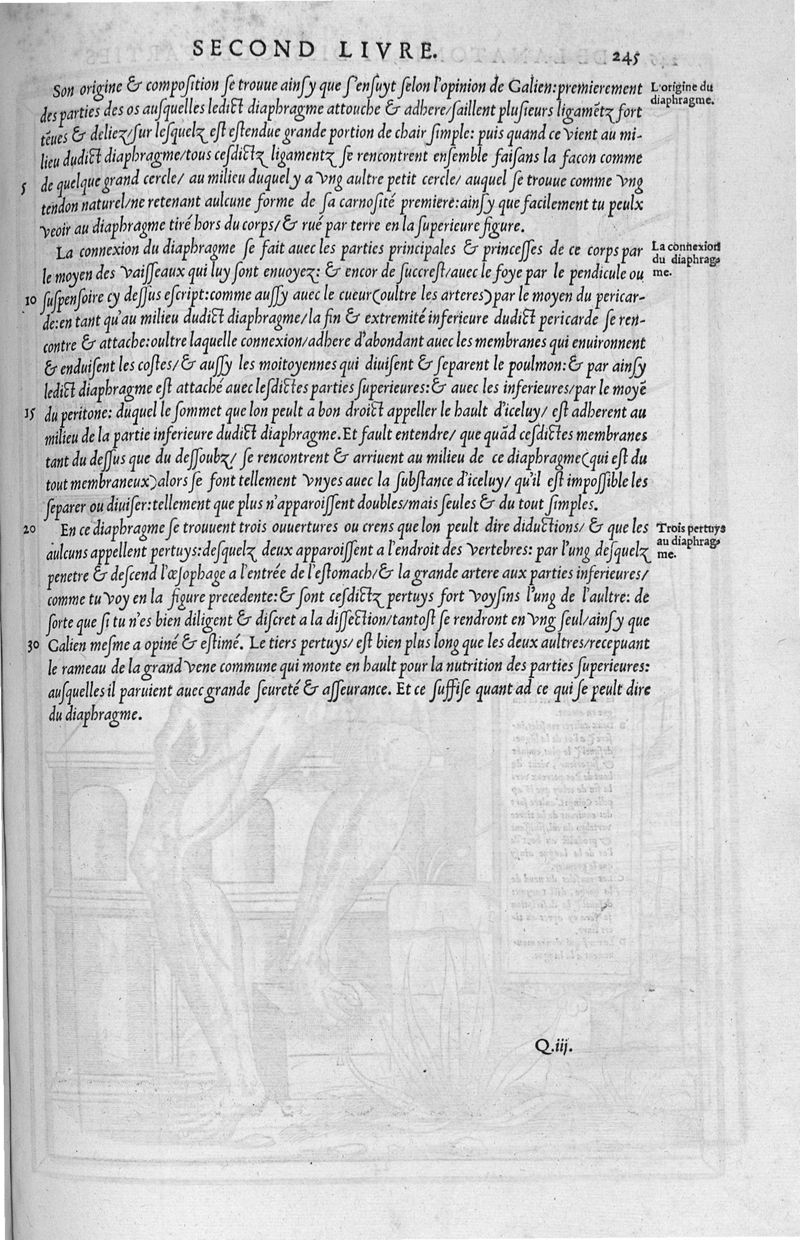 SECOND LIVRE. 245
Son origine & composition se trouue ainsy que s'ensuyt selon l'opinion de Galien:premierement
L'origine du
des parties des os ausquelles ledict diaphragme attouche & adhere/saillent plusieurs ligamẽtz fort
diaphragme.
tẽues & deliez/sur lesquelz est estendue grande portion de chair simple: puis quand ce vient au mi-
lieu dudict diaphragme/tous cesdictz ligamentz se rencontrent ensemble faisans la facon comme
5 de quelque grand cercle/ au milieu duquel y a vng aultre petit cercle/ auquel se trouue comme vng
tendon naturel/ne retenant aulcune forme de sa carnosité premiere:ainsy que facilement tu peulx
veoir au diaphragme tiré hors du corps/& rué par terre en la superieure figure.
La connexion du diaphragme se fait auec les parties principales & princesses de ce corps par
La connexion
le moyen des vaisseaux qui luy sont enuoyez: & encor de succrest/auec le foye par le pendicule ou
du diaphrag-
me.
10 suspensoire cy dessus escript:comme aussy auec le cueur(oultre les arteres)par le moyen du pericar-
de:en tant qu'au milieu dudict diaphragme/la fin & extremité inferieure dudict pericarde se ren-
contre & attache:oultre laquelle connexion/adhere d'abondant auec les membranes qui enuironnent
& enduisent les costes/& aussy les moitoyennes qui diuisent & separent le poulmon:& par ainsy
ledict diaphragme est attaché auec lesdictes parties superieures:& auec les inferieures/par le moyẽ
15 du peritone: duquel le sommet que lon peult a bon droict appeller le hault d'iceluy/ est adherent au
milieu de la partie inferieure dudict diaphragme.Et fault entendre/ que quãd cesdictes membranes
tant du dessus que du dessoubz/ se rencontrent & arriuent au milieu de ce diaphragme(qui est du
tout membraneux)alors se font tellement vnyes auec la substance d'iceluy/ qu'il est impossible les
separer ou diuiser:tellement que plus n'apparoissent doubles/mais seules & du tout simples.
20 En ce diaphragme se trouuent trois ouuertures ou crens que lon peult dire diductions/ & que les
Trois pertuys
aulcuns appellent pertuys:desquelz deux apparoissent a l'endroit des vertebres: par l'ung desquelz
au diaphrag-
me.
penetre & descend l'œsophage a l'entrée de l'estomach/& la grande artere aux parties inferieures/
comme tu voy en la figure precedente:& sont cesdictz pertuys fort voysins l'ung de l'aultre: de
sorte que si tu n'es bien diligent & discret a la dissection/tantost se rendront en vng seul/ainsy que
30 Galien mesme a opiné & estimé. Le tiers pertuys/ est bien plus long que les deux aultres/recepuant
le rameau de la grand vene commune qui monte en hault pour la nutrition des parties superieures:
ausquelles il paruient auec grande seureté & asseurance. Et ce suffise quant ad ce qui se peult dire
du diaphragme.
Q.iij.